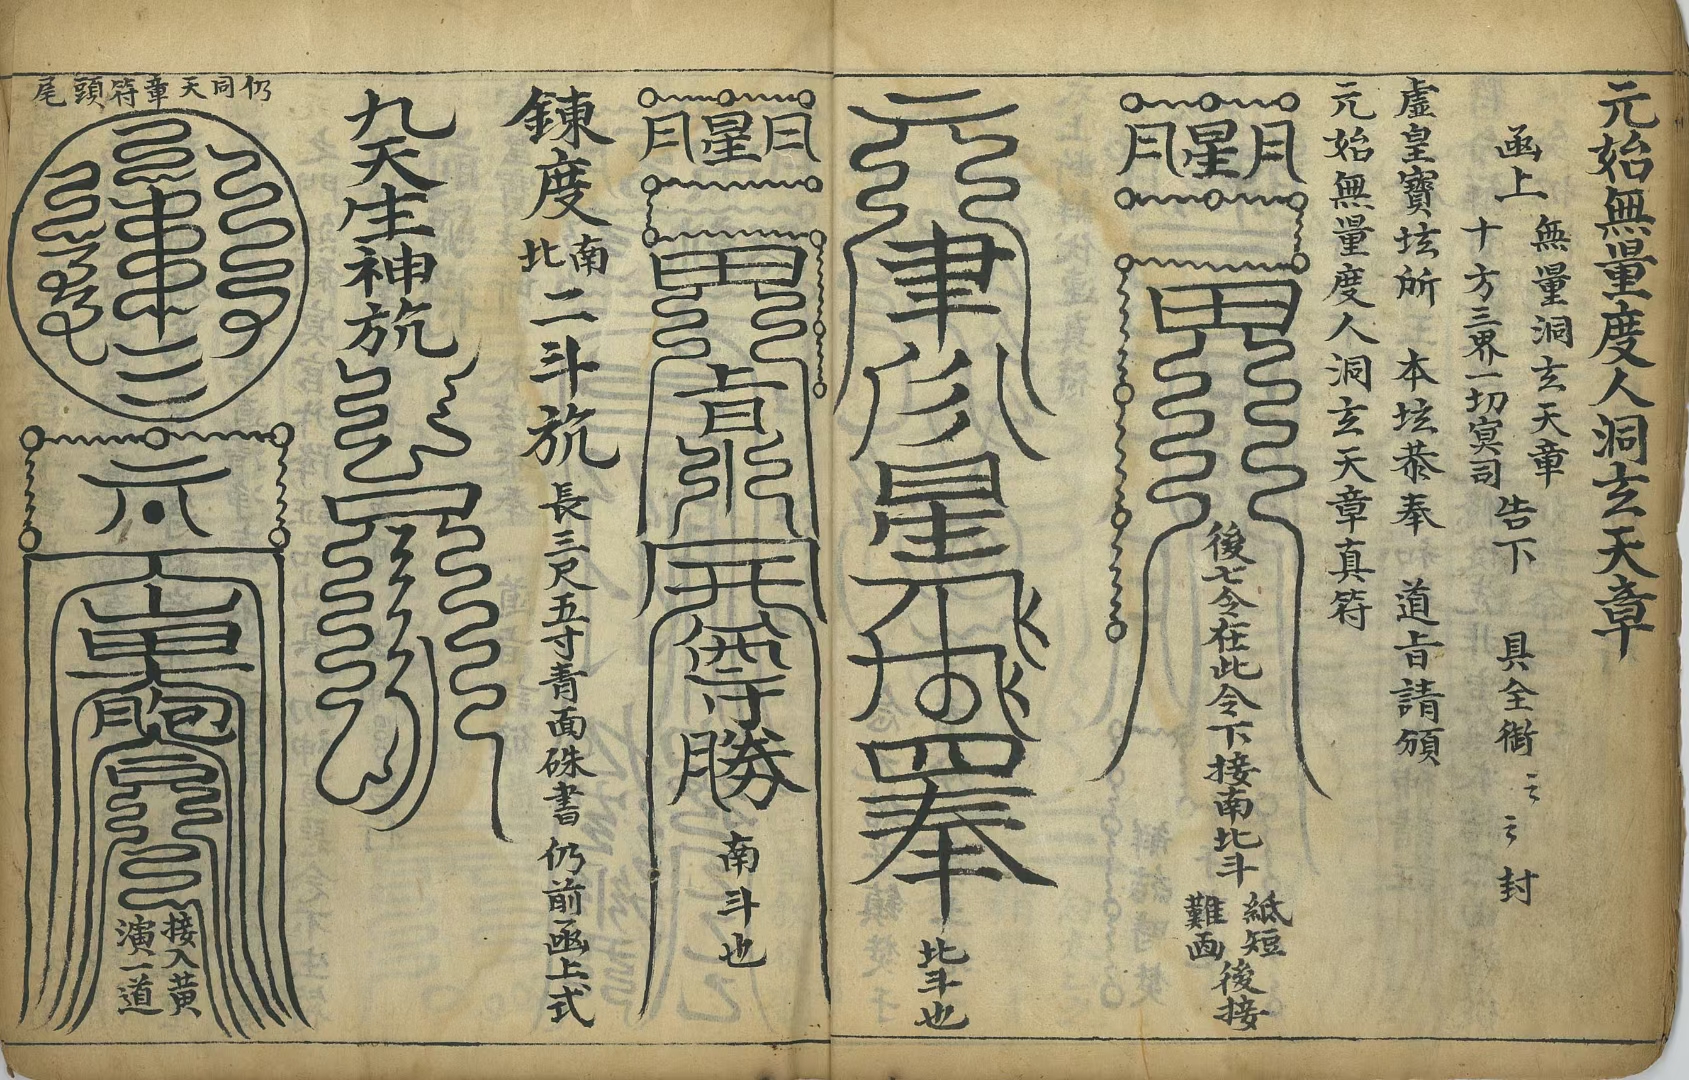 元始無量度人洞玄天章
函上
無量洞玄天章
十方三界一切冥司
告下
具全銜
云云封
虛皇寶坛所
本坛恭奉
道旨請頒
元始無量度人洞玄天章真符
月星月
後七令在此令下接南北斗
紙短
難画
後接
元
聿
星
飛
四奉
北斗也
月星月
真
等勝
南斗也
鍊度
南
北
二斗旂
長三尺五寸青面硃書仍前函上式
九天生神旂
仍同天章符頭尾
接入黃
演一道